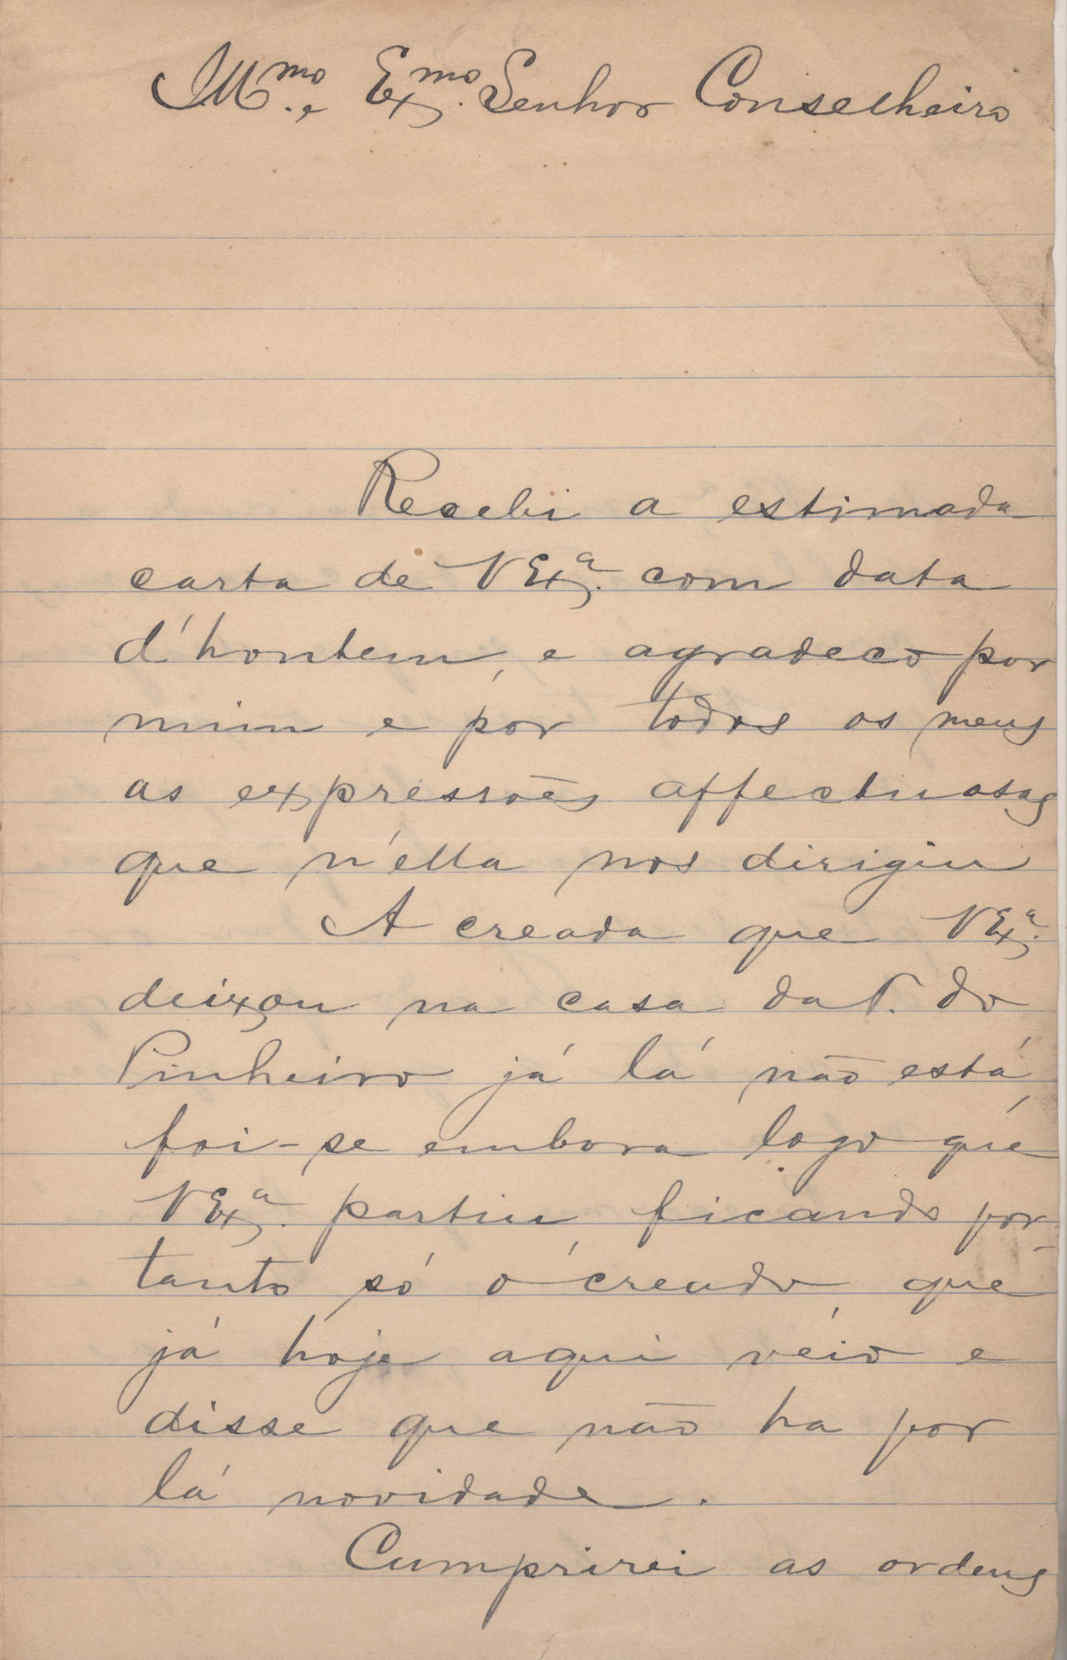 Illmo. e Exmo. Senhor Conselheiro
Recebi a estimada
carta de V Exª. com data
d'hontem, e agradeco por
mim e por todos os meus
as expressões affectuosas
que n'ella nos dirigiu
A creada que V Exª.
deixou na casa da P. do
Pinheiro já lá não está,
foi-se embora logo que
V Exª. partiu, ficando por-
tanto só o creado que
já hoje aqui veio e
disse que não ha por
lá novidade.
Cumprirei as ordens